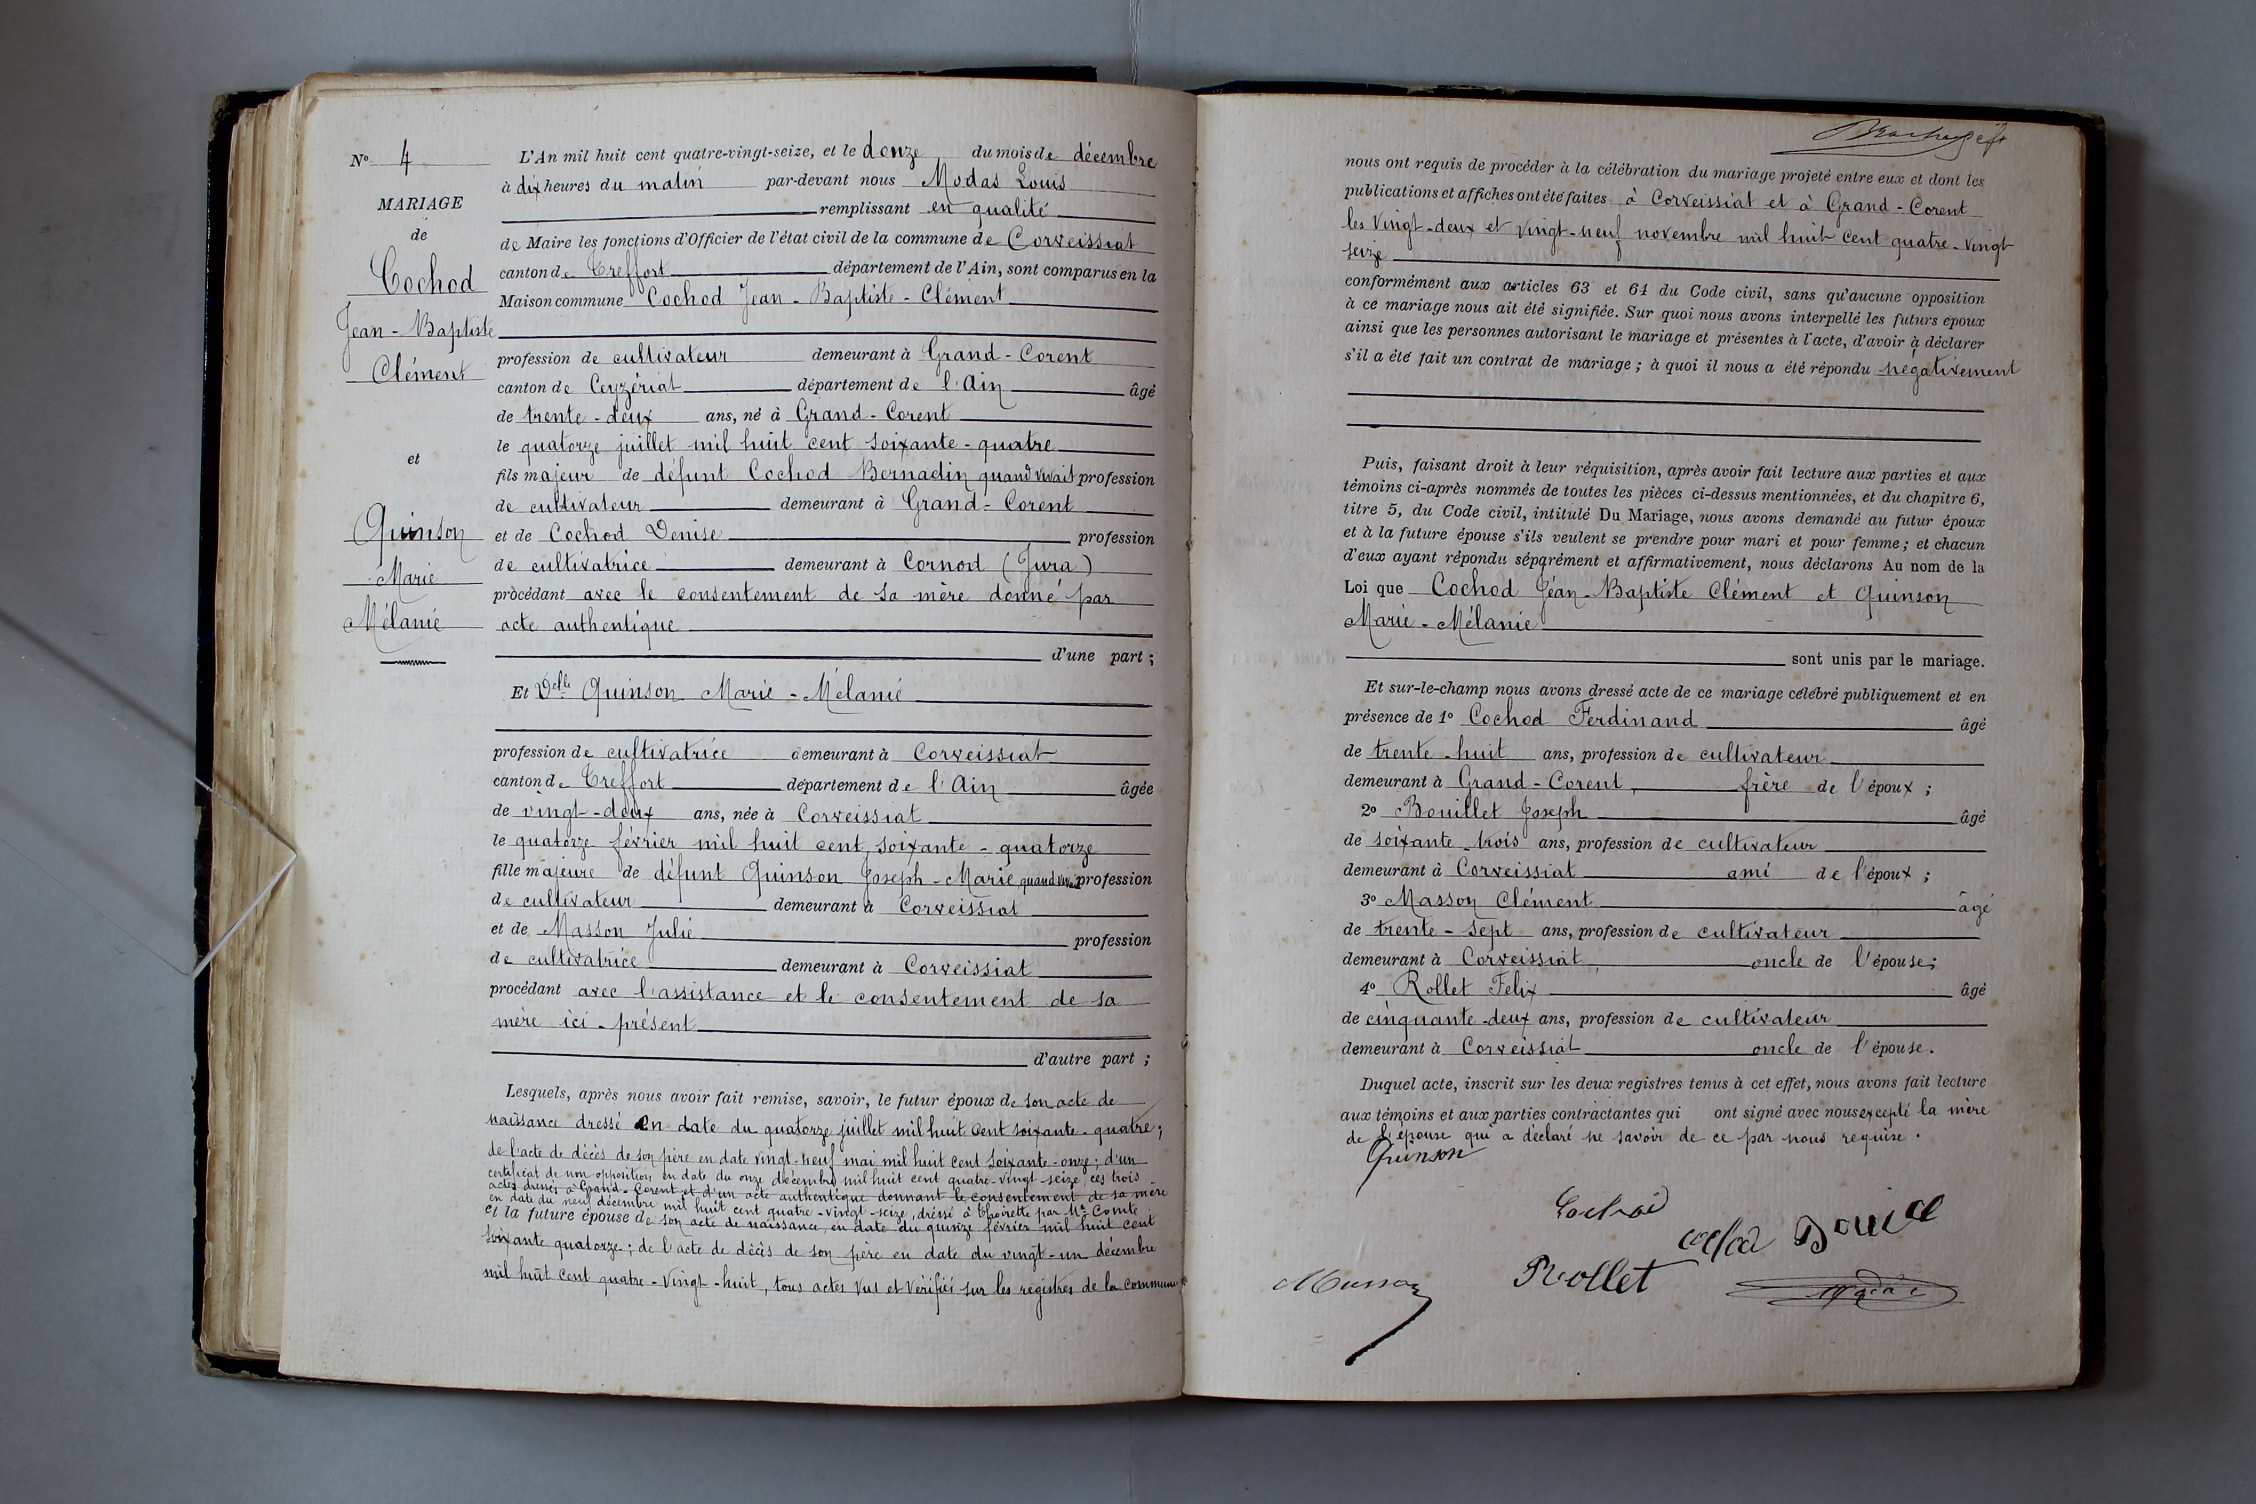 N° 4
MARIAGE
de
Cochod
Jean-Baptiste
Clément
et
Quinson
Marie
Mélanie
L'An mil huit cent quatre-vingt-seize, et le douze du mois de décembre
à dix heures du matin par-devant nous Modas Louis
remplissant en qualité
de Maire les fonctions d'Officier de l'état civil de la commune de Corveissiat
canton de Treffort département de l'Ain, sont comparus en la
Maison commune Cochod Jean-Baptiste-Clément
profession de cultivateur demeurant à Grand-Corent
canton de Ceyzériat département de l'Ain âgé
de trente-deux ans, né à Grand-Corent
le quatorze juillet mil huit cent soixante-quatre
fils majeur de défunt Cochod Bernadin quand vivait profession
de cultivateur demeurant à Grand-Corent
et de Cochod Denise profession
de cultivatrice demeurant à Cornod (Jura)
procédant avec le consentement de sa mère donné par
acte authentique
d'une part ;
Et Delle Quinson Marie-Mélanie
profession de cultivatrice demeurant à Corveissiat
canton de Treffort département de l'Ain âgée
de vingt-deux ans, née à Corveissiat
le quatorze février mil huit cent soixante-quatorze
fille majeure de défunt Quinson Joseph-Marie quand vivait profession
de cultivateur demeurant à Corveissiat
et de Masson Julie profession
de cultivatrice demeurant à Corveissiat
procédant avec l'assistance et le consentement de sa
mère ici-présent
d'autre part ;
Lesquels, après nous avoir fait remise, savoir, le futur époux de son acte de
naissance dressé en date du quatorze juillet mil huit cent soixante-quatre ;
de l'acte de décès de son père en date vingt-neuf mai mil huit cent soixante-onze ; d'un
certificat de non opposition en date du onze décembre mil huit cent quatre-vingt-seize, ces trois
actes dressés à Grand-Corent et d'un acte authentique donnant le consentement de sa mère
en date du neuf décembre mil huit cent quatre-vingt-seize, dréssé à Thoirette par Me Comte
et la future épouse de son acte de naissance, en date du quinze février mil huit cent
soixante quatorze ; de l'acte de décès de son père en date du vingt-un décembre
mil huit cent quatre-vingt-huit, tous actes vus et vérifiés sur les registres de la commune
nous ont requis de procéder à la célébration du mariage projeté entre eux et dont les
publications et affiches ont été faites à Corveissiat et à Grand-Corent
les vingt-deux et vingt-neuf novembre mil huit cent quatre-vingt
seize
conformément aux articles 63 et 64 du Code civil, sans qu'aucune opposition
à ce mariage nous ait été signifiée. Sur quoi nous avons interpellé les futurs époux
ainsi que les personnes autorisant le mariage et présentes à l'acte, d'avoir à déclarer
s'il a été fait un contrat de mariage ; à quoi il nous a été répondu négativement
Puis, faisant droit à leur réquisition, après avoir fait lecture aux parties et aux
témoins ci-après nommés de toutes les pièces ci-dessus mentionnées, et du chapitre 6,
titre 5, du Code civil, intitulé Du Mariage, nous avons demandé au futur époux
et à la future épouse s'ils veulent se prendre pour mari et pour femme ; et chacun
d'eux ayant répondu séparément et affirmativement, nous déclarons Au nom de la
Loi que Cochod Jean-Baptiste Clément et Quinson
Marie-Mélanie
sont unis par le mariage.
Et sur-le-champ nous avons dressé acte de ce mariage célébré publiquement et en
présence de 1° Cochod Ferdinand âgé
de trente-huit ans, profession de cultivateur
demeurant à Grand-Corent, frère de l'époux ;
2° Bouillet Joseph âgé
de soixante-trois ans, profession de cultivateur
demeurant à Corveissiat ami de l'époux ;
3° Masson Clément âgé
de trente-sept ans, profession de cultivateur
demeurant à Corveissiat, oncle de l'épouse ;
4° Rollet Felix âgé
de cinquante-deux ans, profession de cultivateur
demeurant à Corveissiat oncle de l'épouse.
Duquel acte, inscrit sur les deux registres tenus à cet effet, nous avons fait lecture
aux témoins et aux parties contractantes qui ont signé avec nous excepté la mère
de l'épouse qui a déclaré ne savoir de ce par nous requise.
Quinson
Cochod
Rollet